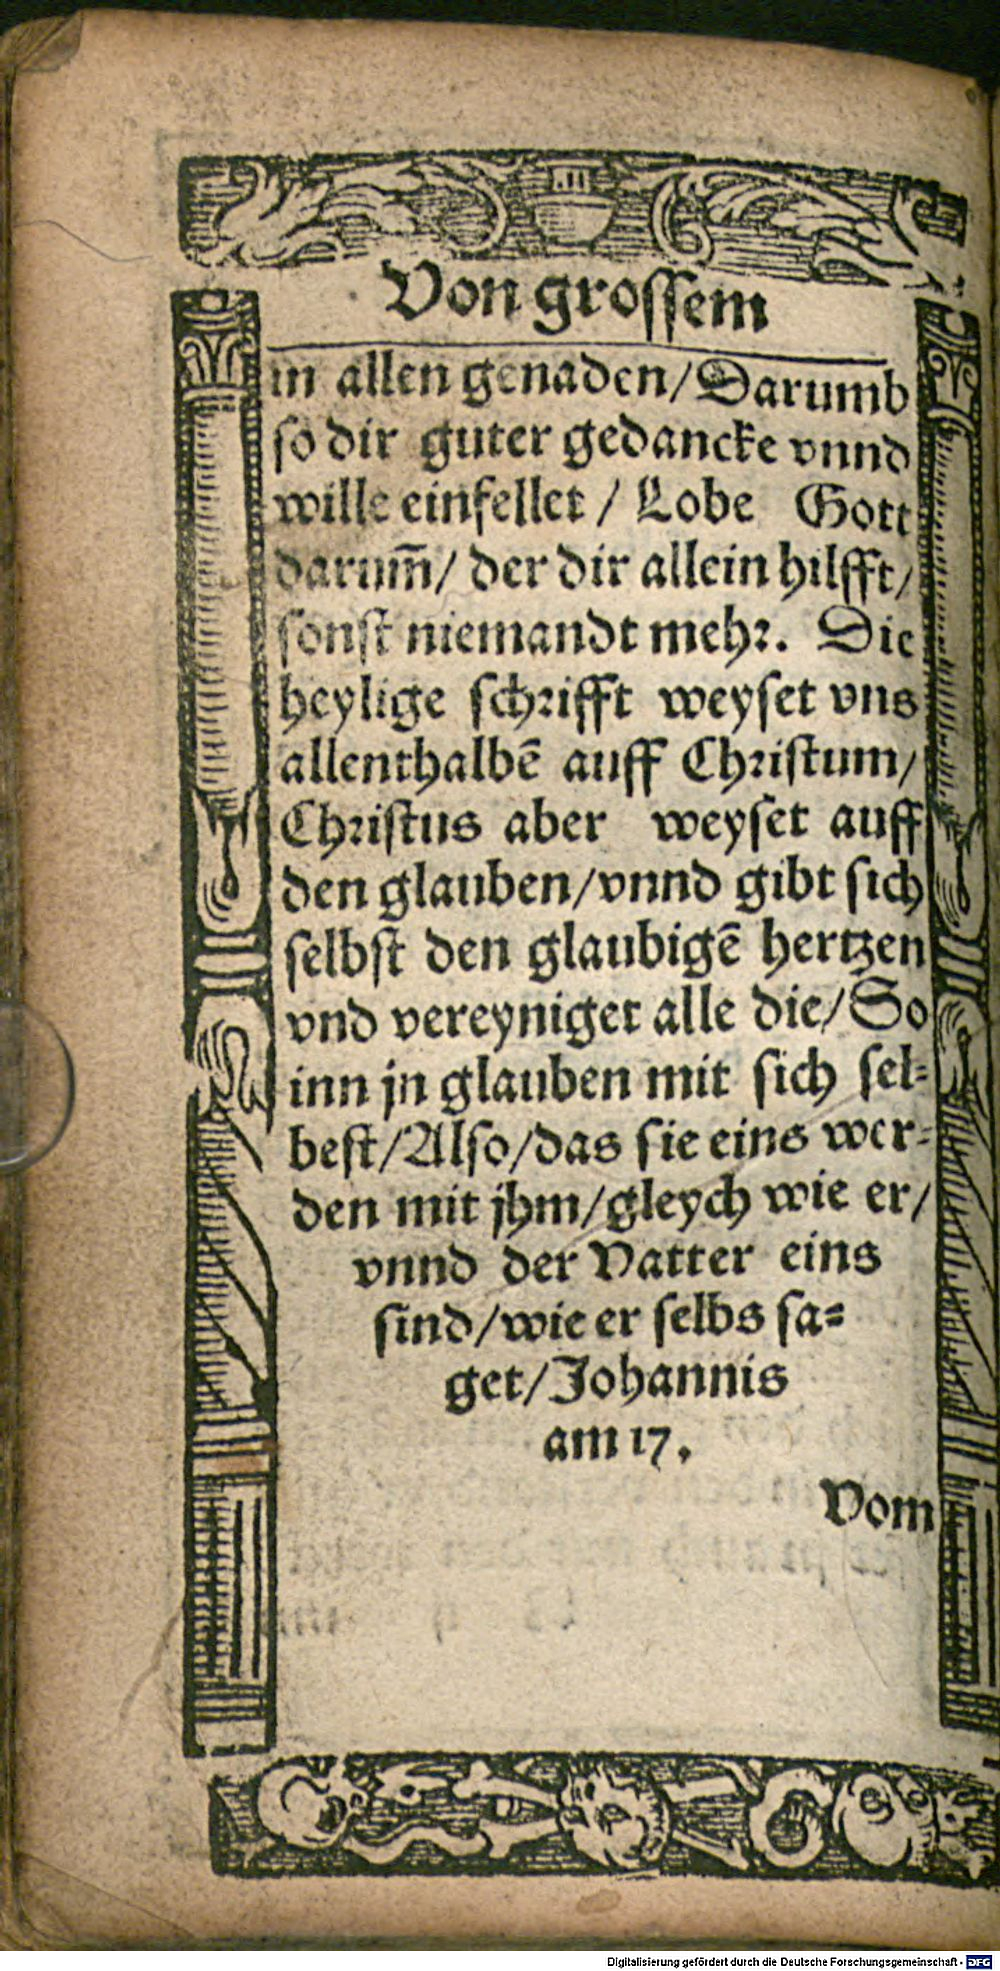 Von grossem
in allen genaden/Darumb
so dir guter gedancke vnnd
wille einfellet / Lobe Gott
darum̄/ der dir allein hilfft/
sonst niemandt mehr. Die
heylige schrifft weyset vns
allenthalbē auff Christum/
Christus aber weyset auff
den glauben/vnnd gibt sich
selbst den glaubigē hertzen
vnd vereyniget alle die/So
inn jn glauben mit sich sel-
best/Also/das sie eins wer-
den mit jhm/gleych wie er/
vnnd der Vatter eins
sind/wie er selbs sa-
get/Johannis
am 17.
Vom
Digitalisierung gefördert durch die Deutsche Forschungsgemeinschaft - DFG